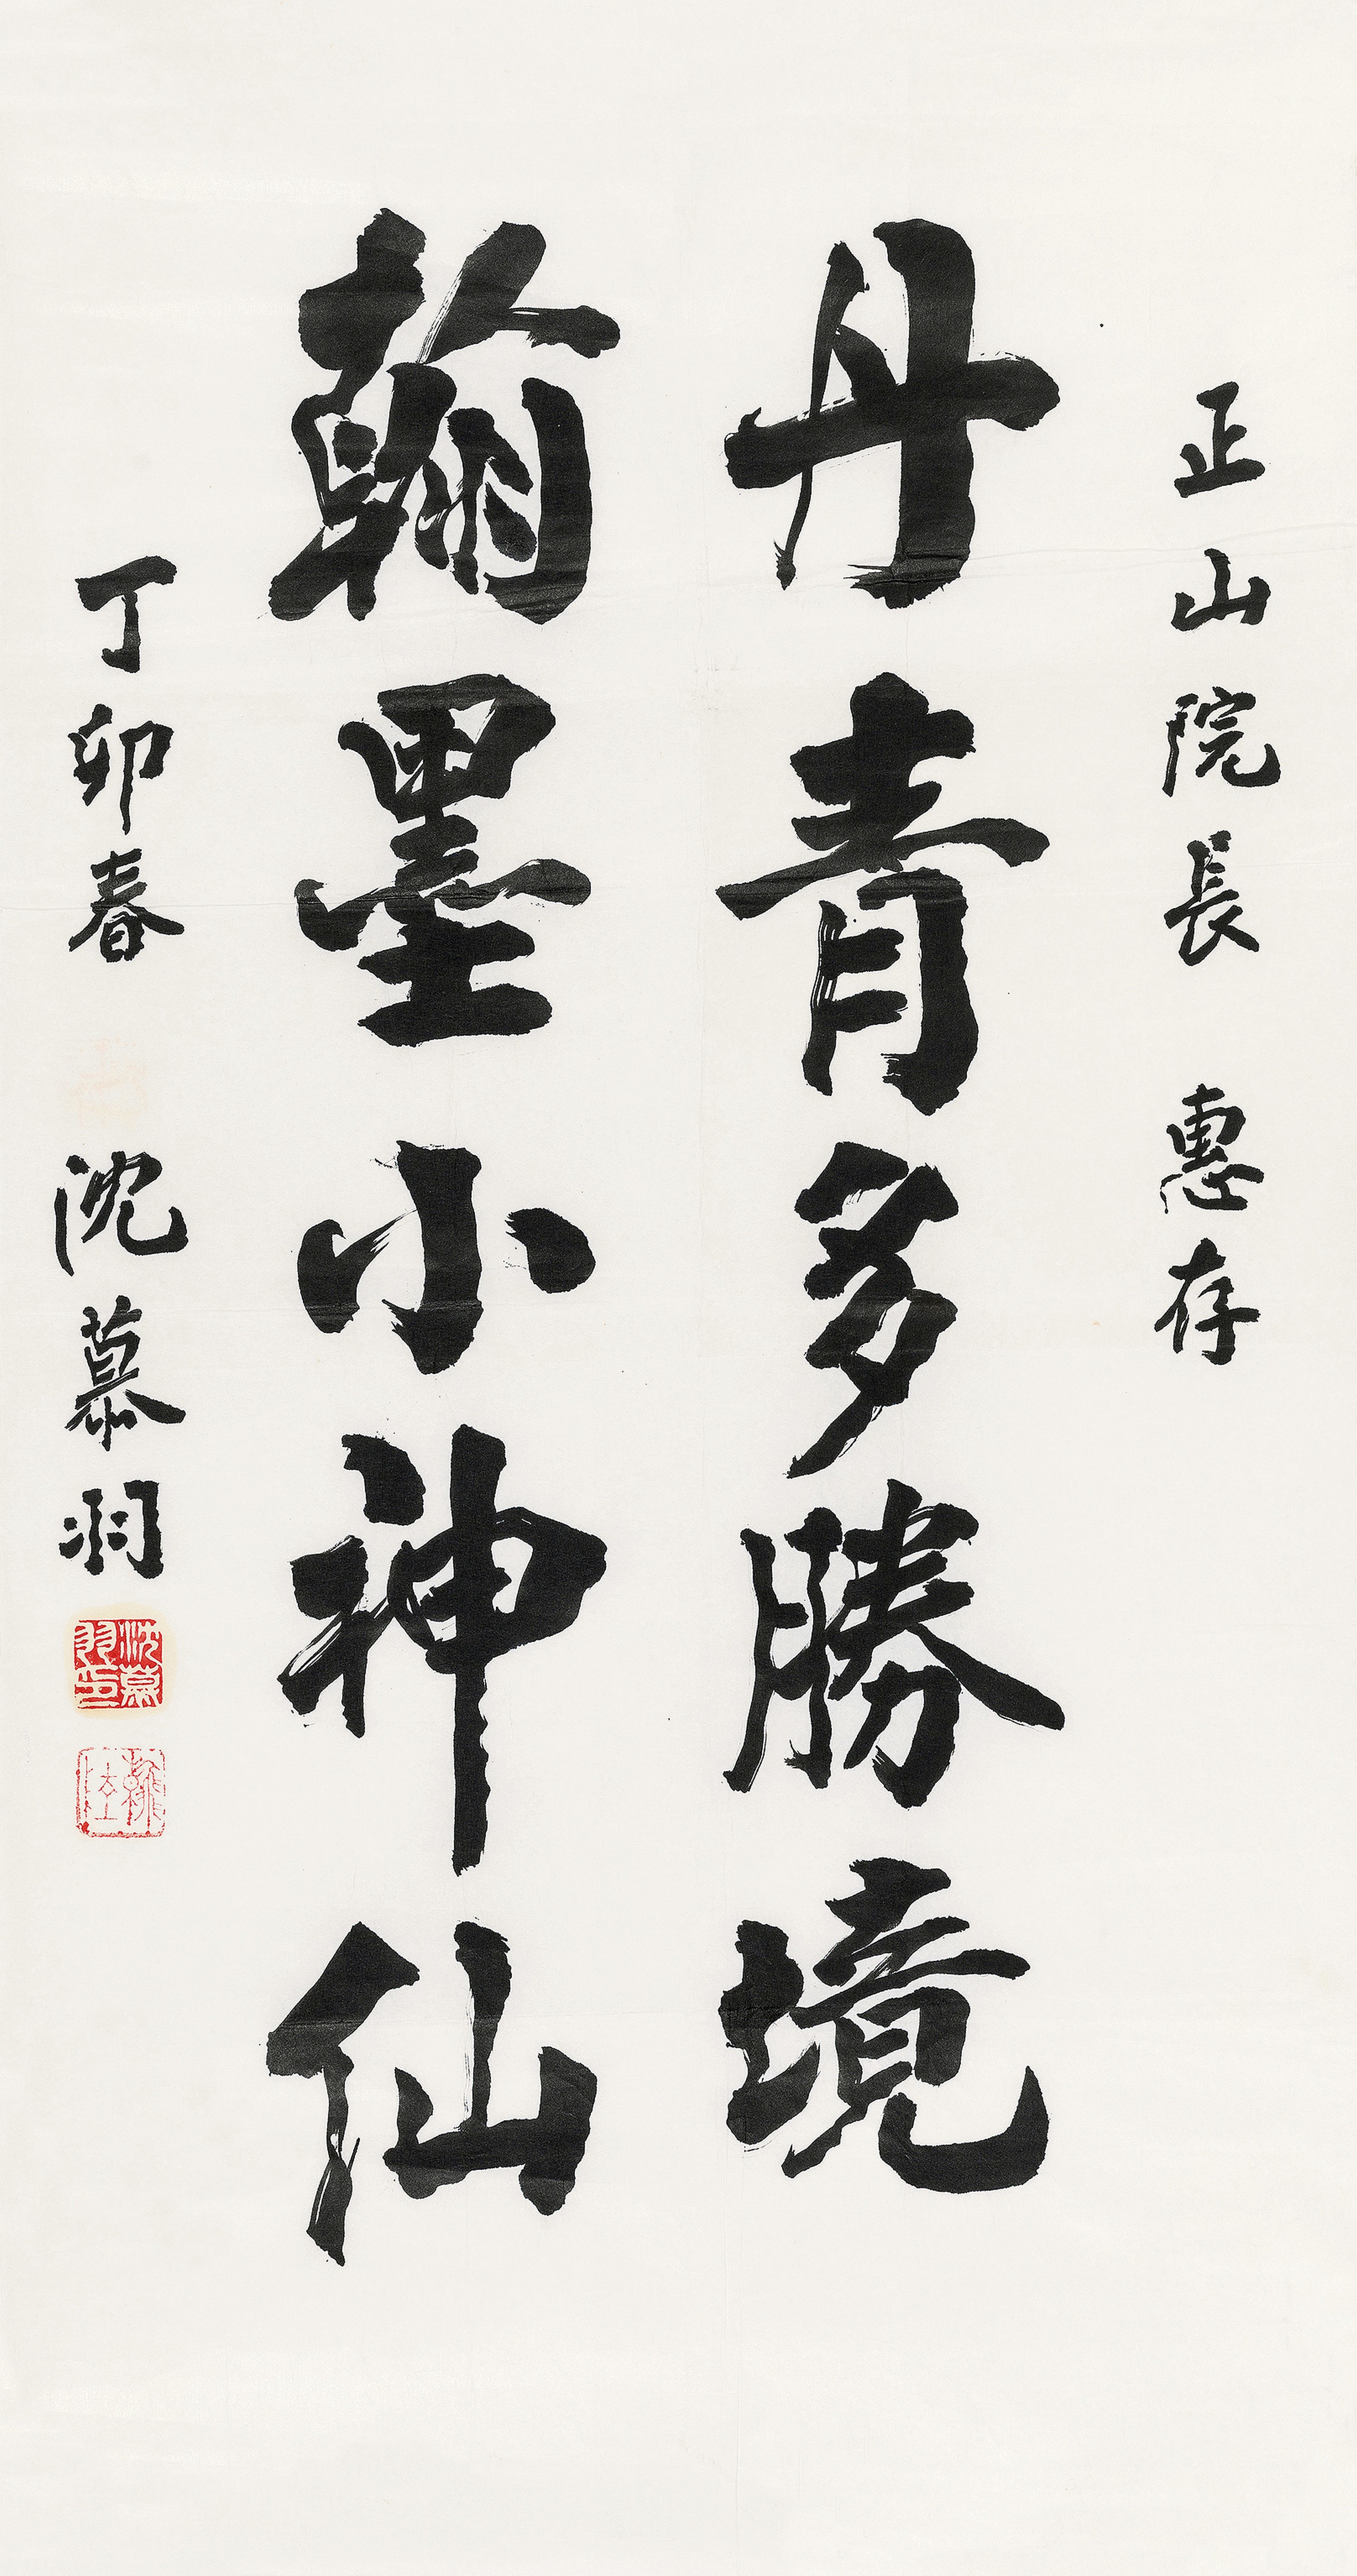 正山院長 惠存
丹青多勝境
翰墨小神仙
丁卯春 沈慕羽
沈慕羽印